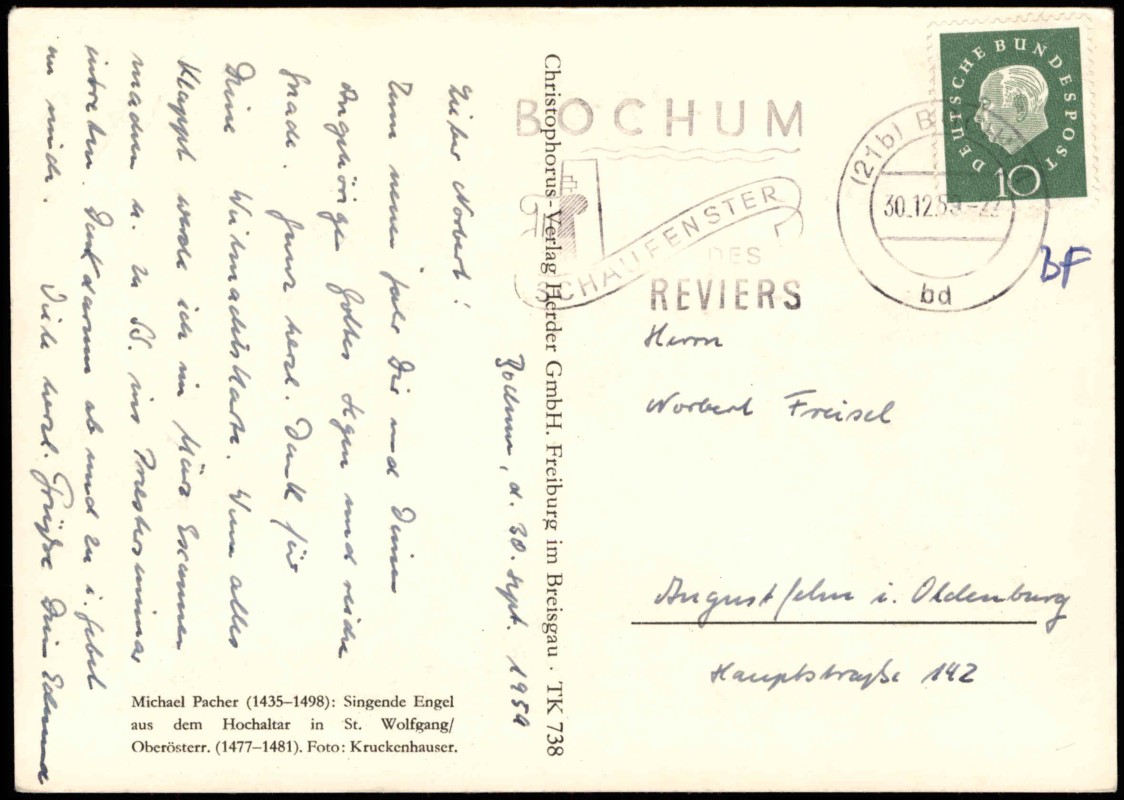 Bochum, d. 30. Sept. 1959
Lieber Norbert!
Zum neuen Jahr Dir und Deinen
Angehörigen Gottes Segen und reiche
Gnade. Ganz herzl. Dank für
Deine Weihnachtskarte. Wenn alles
klappt werde ich im März Examen
machen u. in SS. ins Priesterseminar
eintreten. Denk darum ab und zu i. Gebet
an mich. Viele herzl. Grüße Dein Edmund
Michael Pacher (1435–1498): Singende Engel
aus dem Hochaltar in St. Wolfgang/
Oberösterr. (1477–1481). Foto: Kruckenhauser.
Christophorus-Verlag Herder GmbH. Freiburg im Breisgau · TK 738
BOCHUM
SCHAUFENSTER
DES
REVIERS
(21b) BOCHUM
30.12.59.-22
bd
DEUTSCHE BUNDESPOST
10
BF
Herrn
Norbert Freisel
Augustfehn i. Oldenburg
Hauptstraße 142